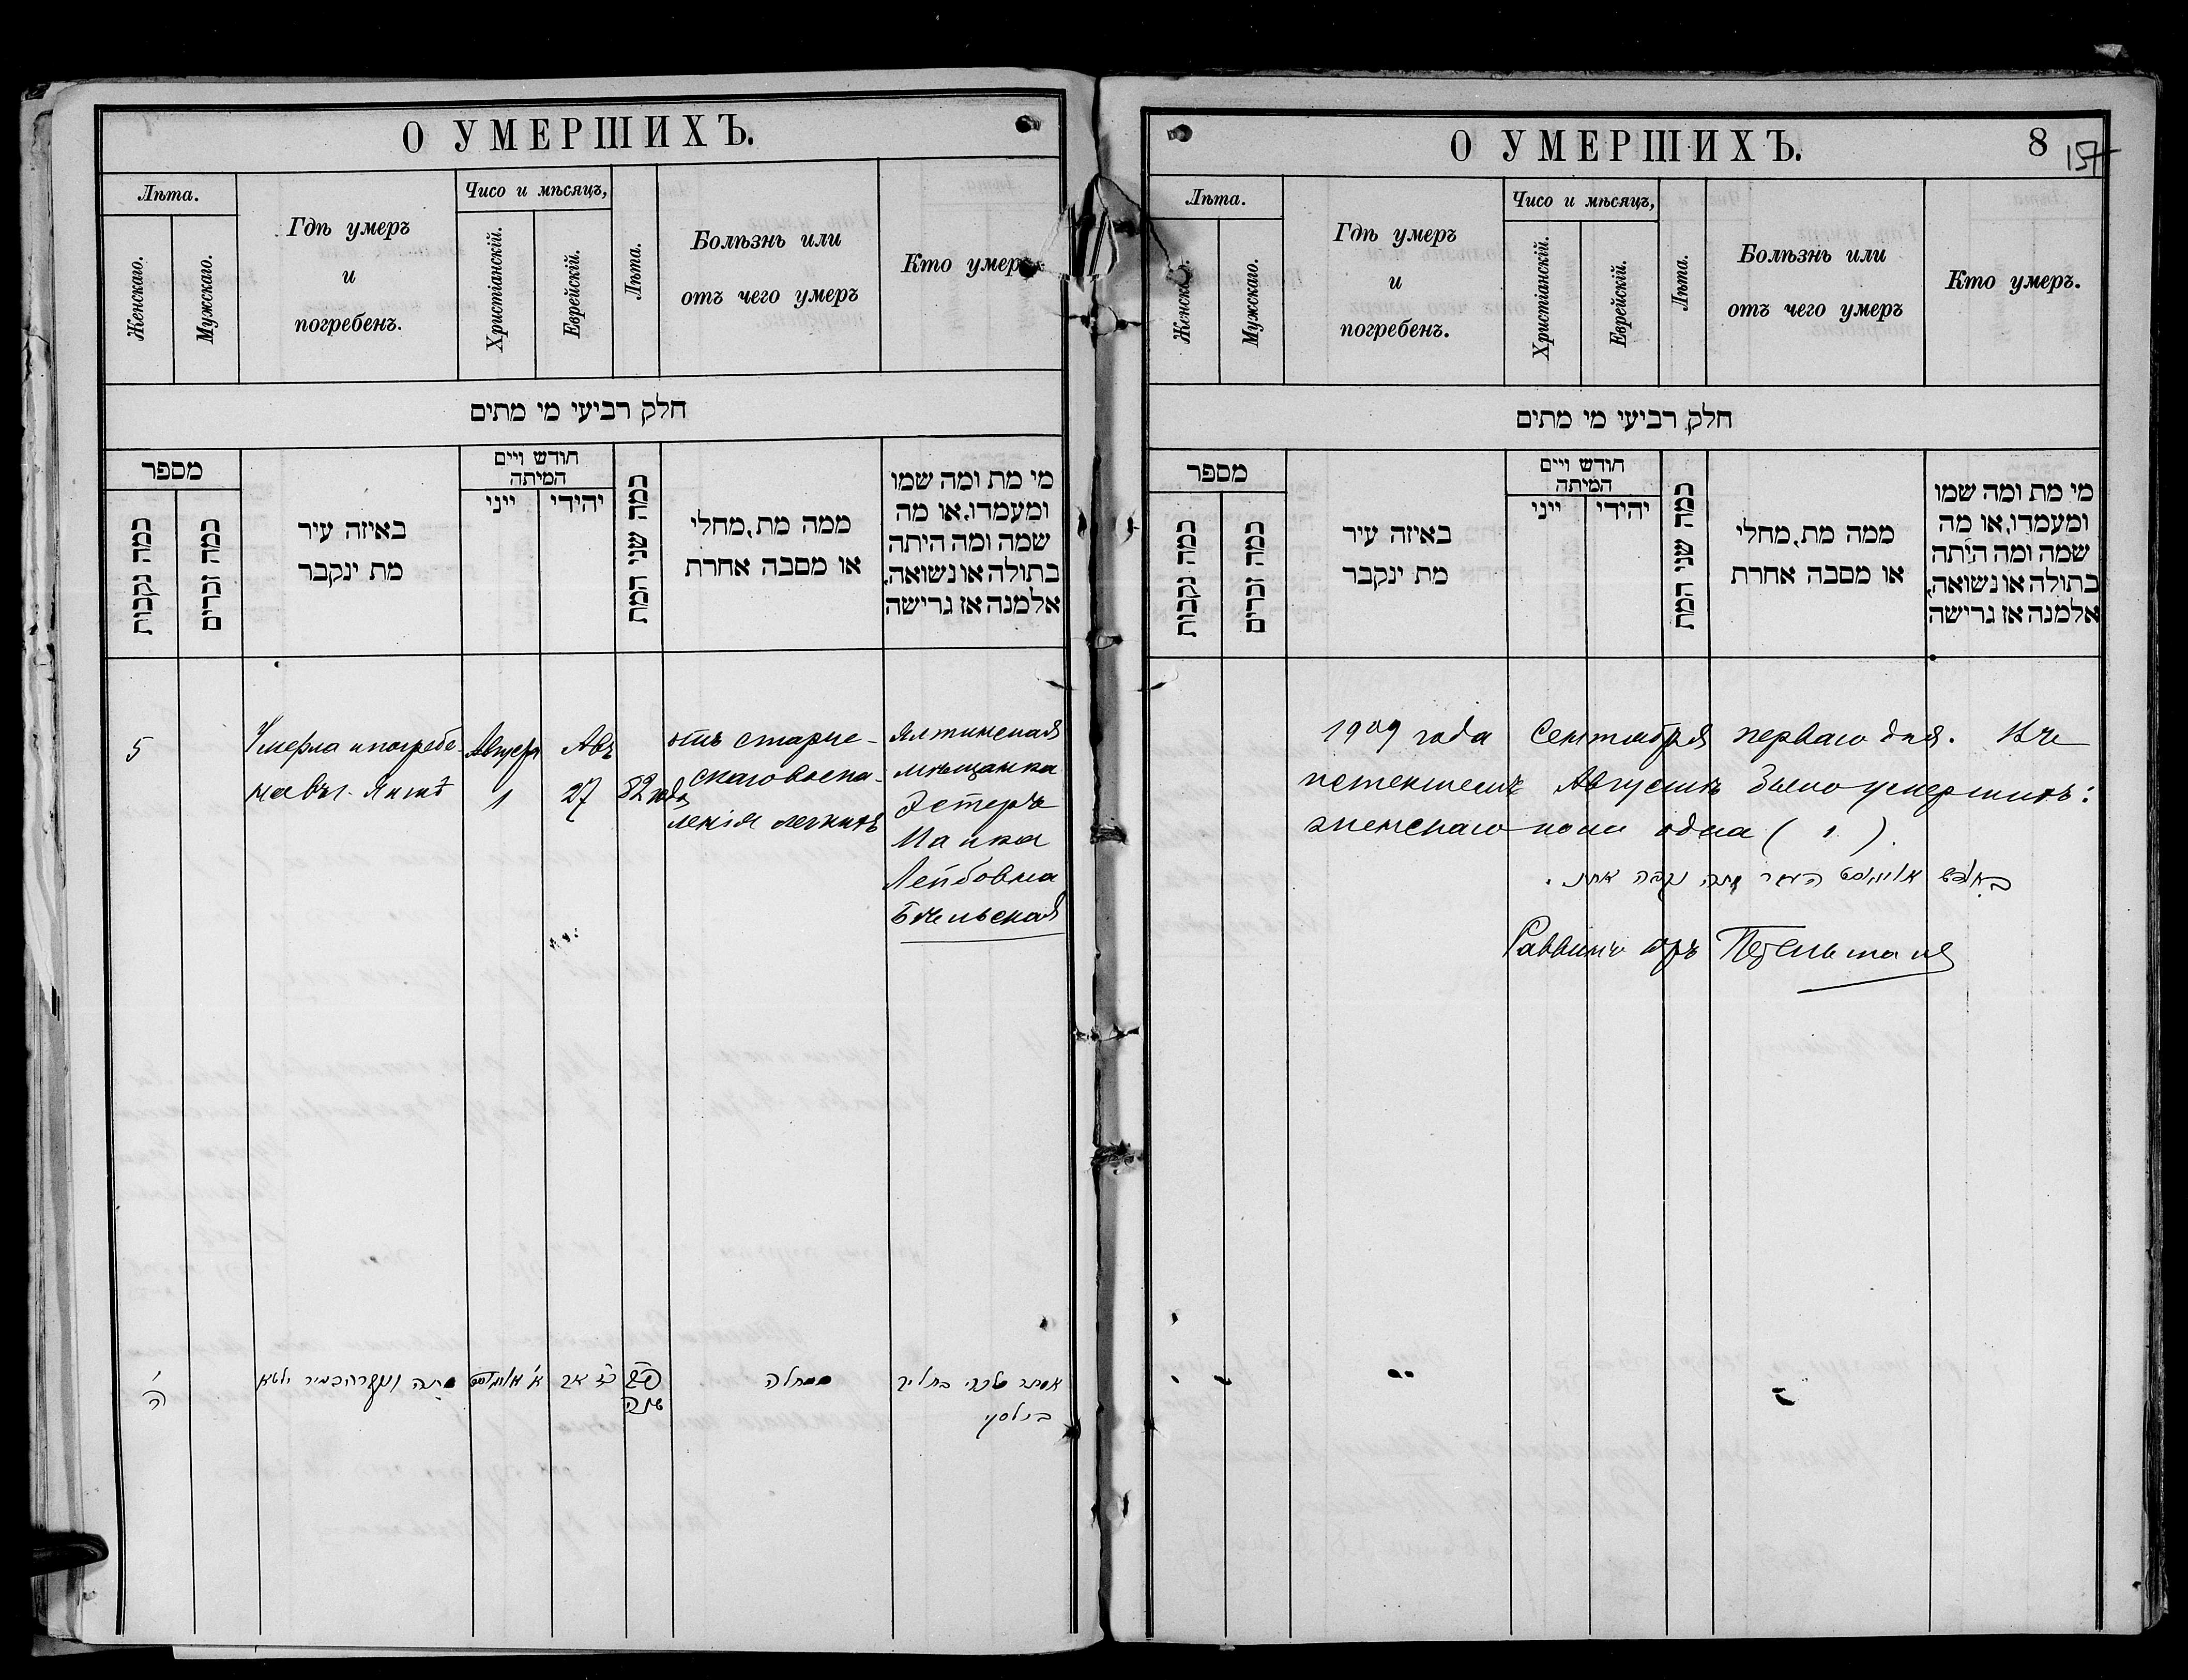 О УМЕРШИХЪ.
Лѣта.
Женскаго.
Мужскаго.
Гдѣ умеръ
и
погребенъ.
Чисо и мѣсяцъ,
Христіанскій.
Еврейскій.
Лѣта.
Болѣзнь или
отъ чего умеръ
Кто умеръ
חלק רביעי מי מתים
מספר
כמה נקבות
כמה זכרים
באיזה עיר
מת ינקבר
חודש ויים
המיתה
ייני
יהידי
כמה שני המת
ממה מת, מחלי
או מסבה אחרת
מי מת ומה שמו
ומעמדו, או מה
שמה ומה היתה
בתולה או נשואה,
אלמנה אז גרישה
5
Умерла и погребе-
на въ г. Ялтѣ
Августа
1
Авъ
27
82 года
отъ старче-
скаго воспа-
ленія легкихъ
Ялтинская
мѣщанка
Эстеръ
Лейбовна
Бѣльская
ה'
א' אויגוסט
כז אב
פב
שנה
ממחלה
אסתר
בילסקי
О УМЕРШИХЪ.
8
157
Лѣта.
Женскаго.
Мужскаго.
Гдѣ умеръ
и
погребенъ.
Чисо и мѣсяцъ,
Христіанскій.
Еврейскій.
Лѣта.
Болѣзнь или
отъ чего умеръ
Кто умеръ.
חלק רביעי מי מתים
מספר
כמה נקבות
כמה זכרים
באיזה עיר
מת ינקבר
חודש ויים
המיתה
ייני
יהידי
כמה שני המת
ממה מת, מחלי
או מסבה אחרת
מי מת ומה שמו
ומעמדו, או מה
שמה ומה היתה
בתולה או נשואה,
אלמנה אז גרישה
1909 года Сентября перваго дня. Въ
истекшемъ Августѣ было умершихъ:
женскаго пола одна (1).
בחדש אויגוסט העבר מתה נקבה אחת.
Раввинъ